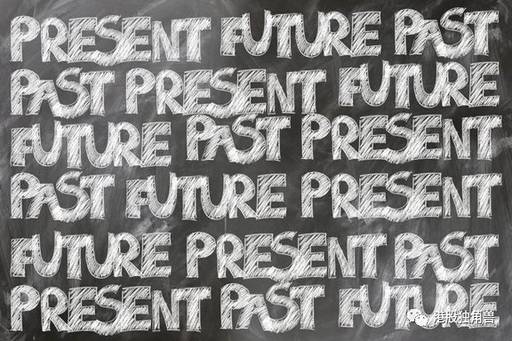 PRESENT FUTURE PAST
PAST PRESENT FUTURE
FUTURE PAST PRESENT
PAST FUTURE PRESENT
FUTURE PRESENT PAST
PRESENT PAST FUTURE
港股独角兽